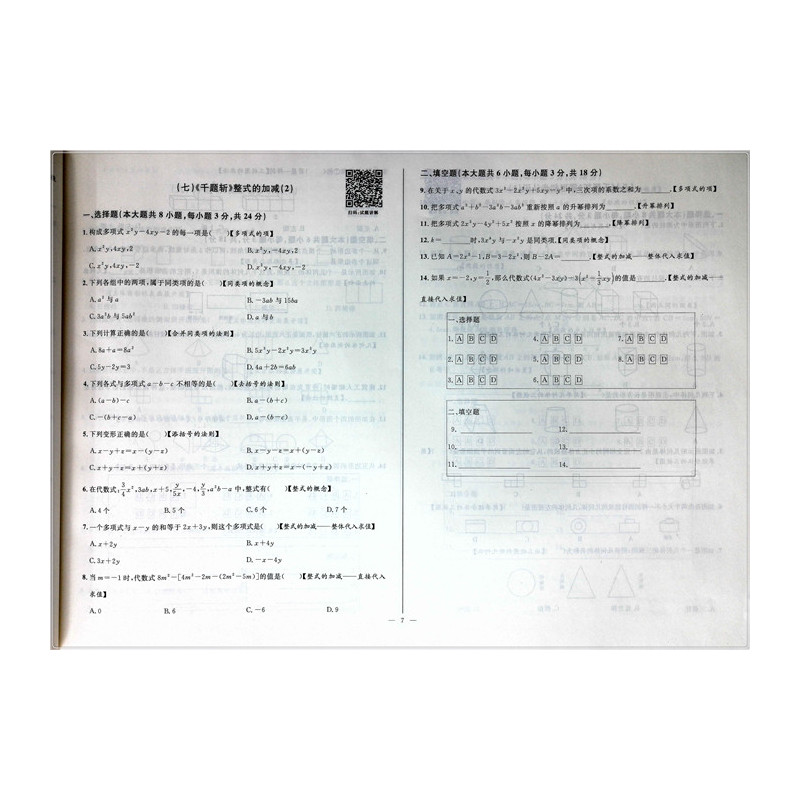 (七)《千题斩》整式的加减(2)
扫码·试题讲解
一、选择题(本大题共 8 小题,每小题 3 分,共 24 分)
1.构成多项式 x³y-4xy-2 的每一项是( )【多项式的项】
A.x³y,4xy,2 B.x³y,-4xy,2
C.x³y,4xy,-2 D.x³y,-4xy,-2
2.下列各组中的两项,属于同类项的是( )【同类项的概念】
A.a²与 a B.-3ab 与 15ba
C.3a²b 与 5ab² D.a 与 b
3.下列计算正确的是( )【合并同类项的法则】
A.8a+a=8a² B.5x²y-2x²y=3x²y
C.5y-2y=3 D.4a+2b=6ab
4.下列各式与多项式 a-b-c 不相等的是( )【去括号的法则】
A.(a-b)-c B.a-(b+c)
C.-(b+c-a) D.a-(b-c)
5.下列变形正确的是( )【添括号的法则】
A.x-y+z=x-(y-z) B.x-y-z=x+(y-z)
C.x+y-z=x+(y+z) D.x+y+z=x-(-y+z)
6.在代数式:3/4x²,3ab,x+5,y/5x,-4,y/3,a²b-a 中,整式有( )【整式的概念】
A.4 个 B.5 个 C.6 个 D.7 个
7.一个多项式与 x-y 的和等于 2x+3y,则这个多项式是( )【整式的加减——整体代入求值】
A.x+2y B.x+4y
C.3x+2y D.-x-4y
8.当 m=-1 时,代数式 8m²-[4m²-2m-(2m²-5m)]的值是( )【整式的加减——直接代入
求值】
A.0 B.6 C.-6 D.9
二、填空题(本大题共 6 小题,每小题 3 分,共 18 分)
9.在关于 x、y 的代数式 3x³-2x²y+5xy-y³ 中,三次项的系数之和为______.【多项式的项】
10.把多项式 a³+b³-3a²b-3ab² 重新按照 a 的升幂排列为______.【升幂排列】
11.把多项式 2x²y-4y³+5x³ 按照 x 的降幂排列为______.【降幂排列】
12.k=______时,3x²y 与-xᵏy 是同类项.【同类项的概念】
13.已知 A=2x²-1,B=3-2x²,则 B-2A=______.【整式的加减——整体代入求值】
14.如果 x=-2,y=1/2,那么代数式(4x²-3xy)+3(x²+1/3xy)的值是______.【整式的加减——
直接代入求值】
一、选择题
1. A B C D 4. A B C D 7. A B C D
2. A B C D 5. A B C D 8. A B C D
3. A B C D 6. A B C D
二、填空题
9.______ 12.______
10.______ 13.______
11.______ 14.______
— 7 —